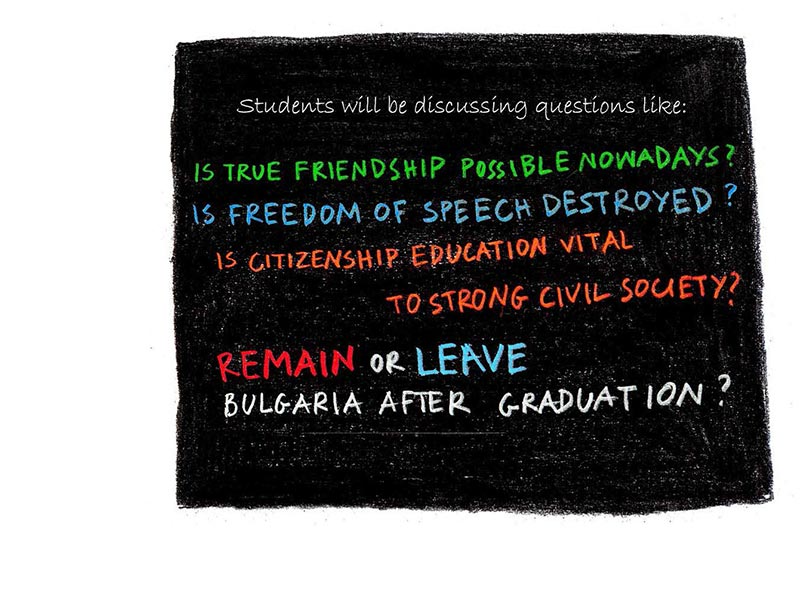 Students will be discussing questions like:
IS TRUE FRIENDSHIP POSSIBLE NOWADAYS?
IS FREEDOM OF SPEECH DESTROYED?
IS CITIZENSHIP EDUCATION VITAL
TO STRONG CIVIL SOCIETY?
REMAIN OR LEAVE
BULGARIA AFTER GRADUATION?